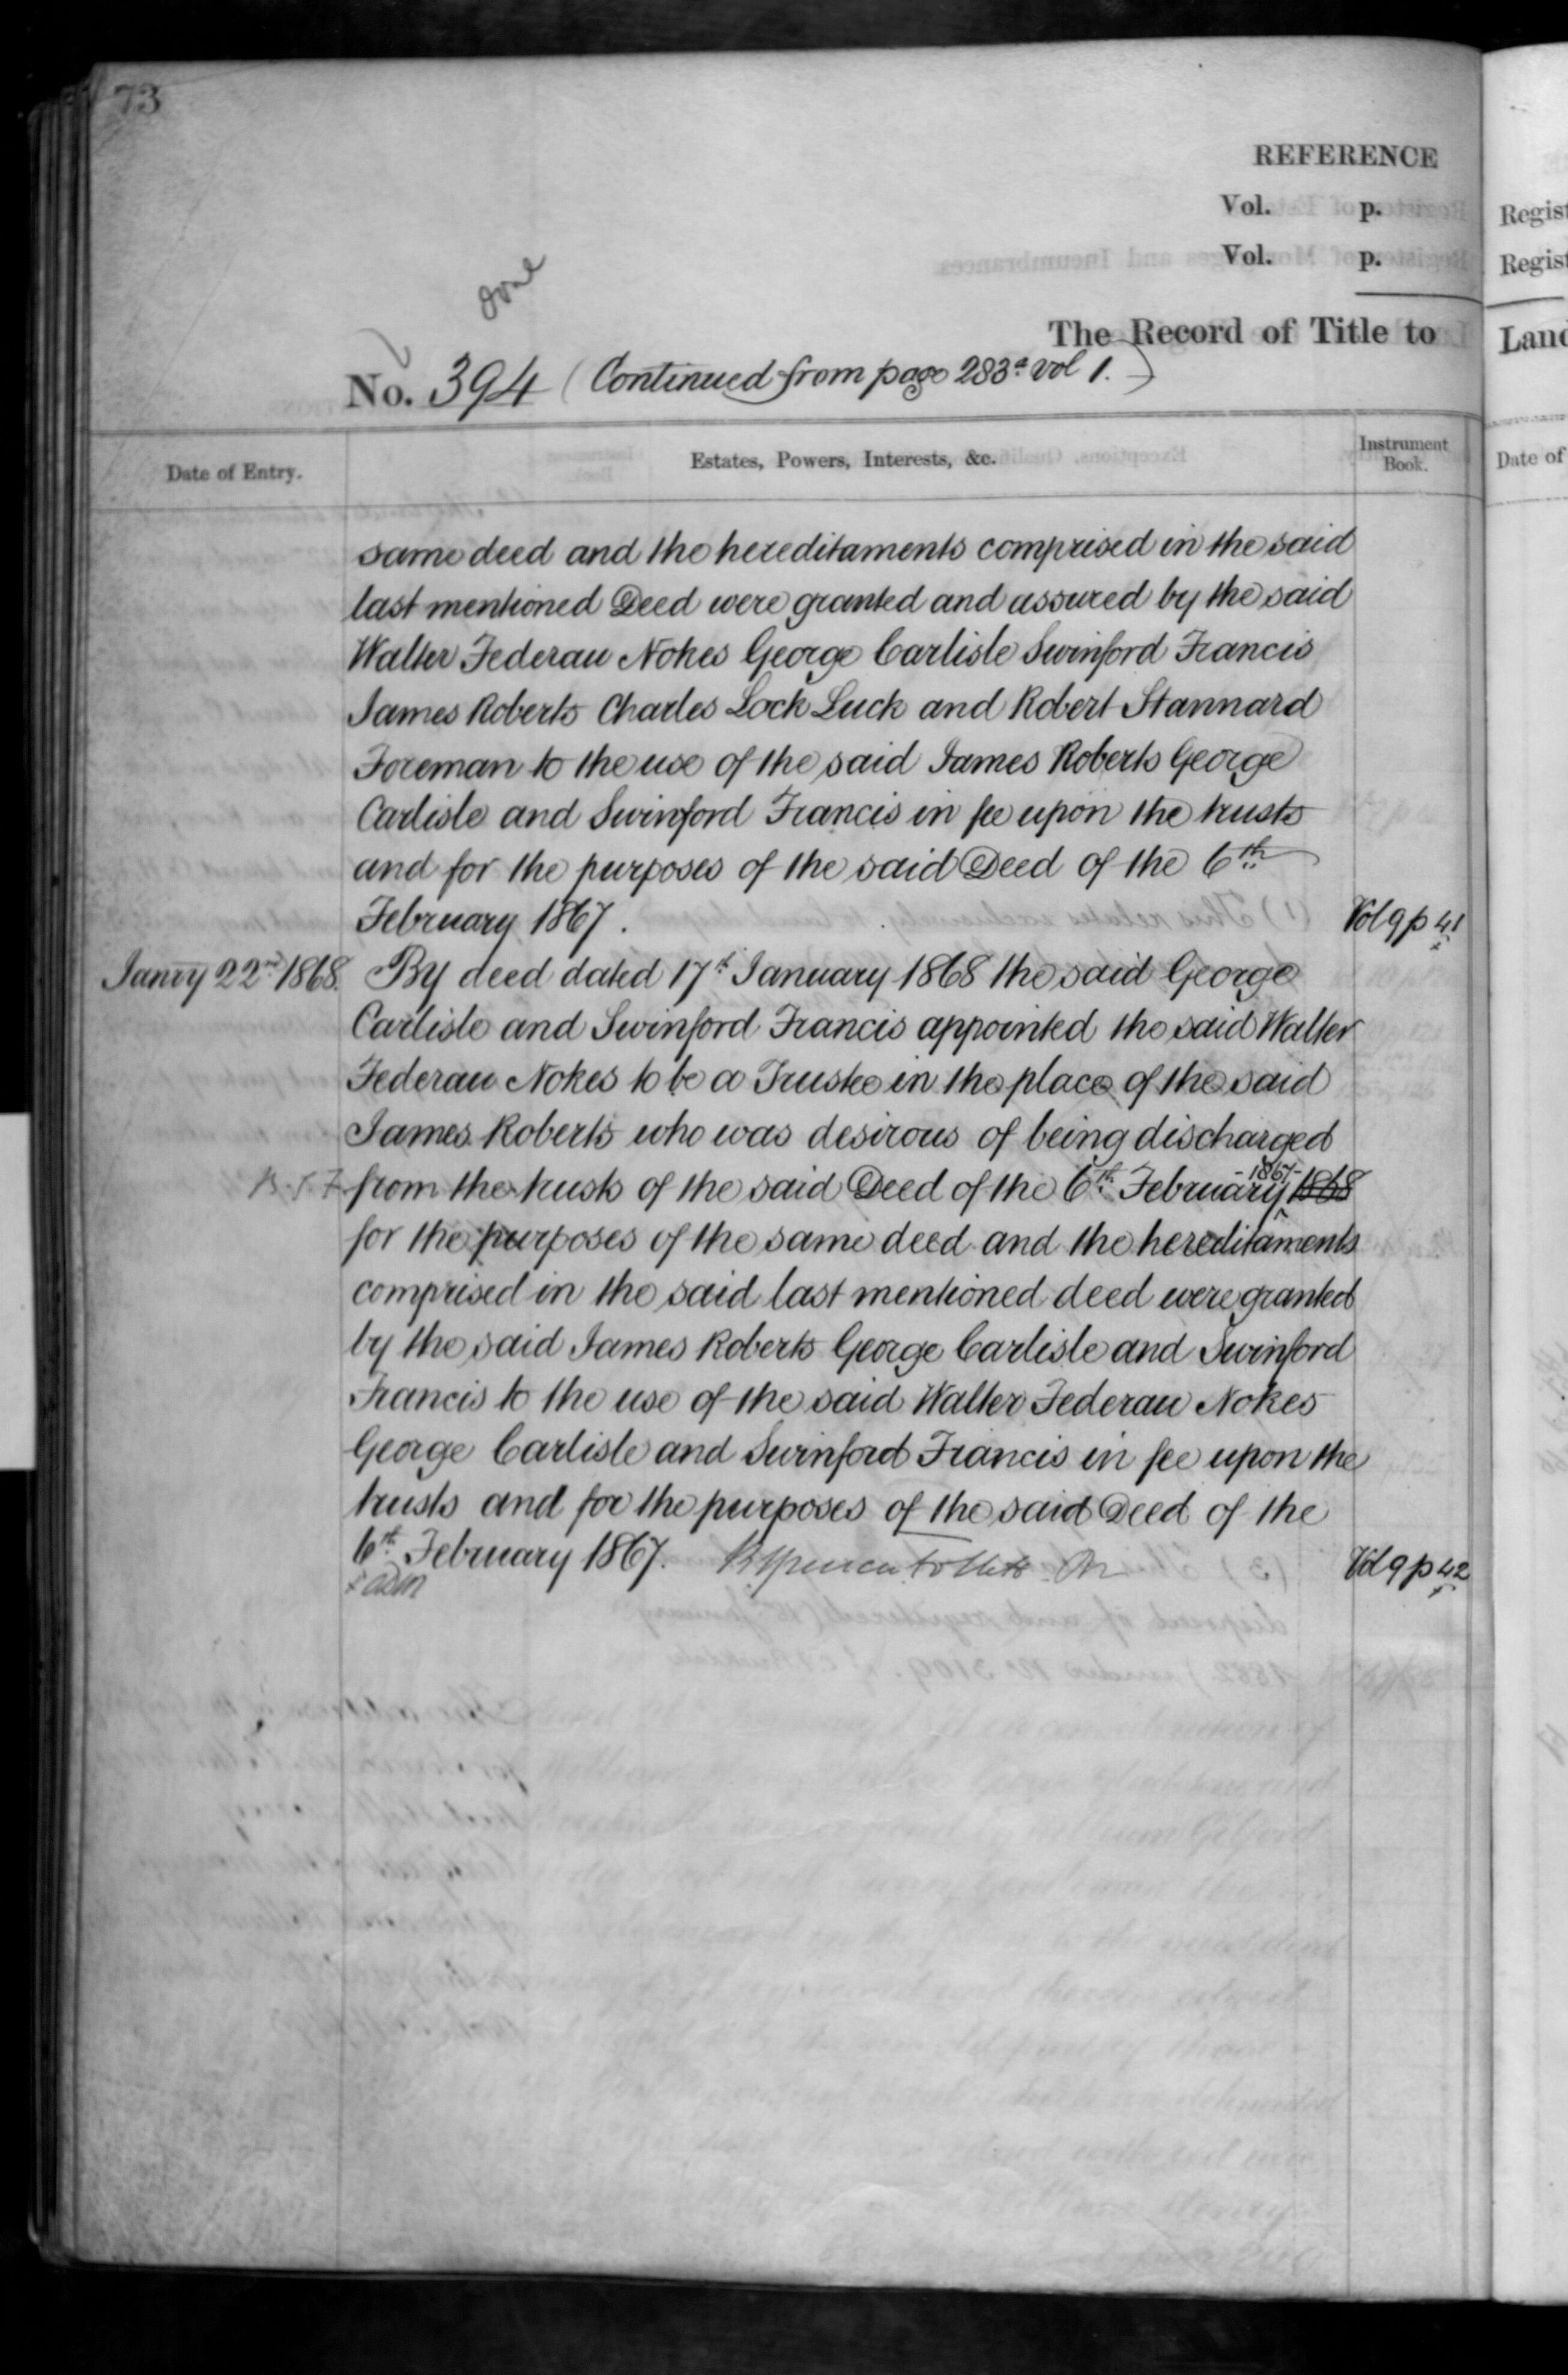 73
REFERENCE
Vol. p.
Vol. p.
one
The Record of Title to
No. 394 (Continued from page 283a vol 1.)
Date of Entry.
Estates, Powers, Interests, &c.
Instrument Book.
same deed and the hereditaments comprised in the said
last mentioned Deed were granted and assured by the said
Walter Federau Nokes George Carlisle Swinford Francis
James Roberts Charles Lock Luck and Robert Stannard
Foreman to the use of the said James Roberts George
Carlisle and Swinford Francis in fee upon the trusts
and for the purposes of the said Deed of the 6th
February 1867. Vol 9 p 41
Janry 22nd 1868. By deed dated 17th January 1868 the said George
Carlisle and Swinford Francis appointed the said Walter
Federau Nokes to be a Trustee in the place of the said
James Roberts who was desirous of being discharged
from the trusts of the said Deed of the 6th February 1867 1868
for the purposes of the same deed and the hereditaments
comprised in the said last mentioned deed were granted
by the said James Roberts George Carlisle and Swinford
Francis to the use of the said Walter Federau Nokes
George Carlisle and Swinford Francis in fee upon the
trusts and for the purposes of the said Deed of the
6th February 1867. Vol 9 p 42
Regist
Regist
Land
Date of